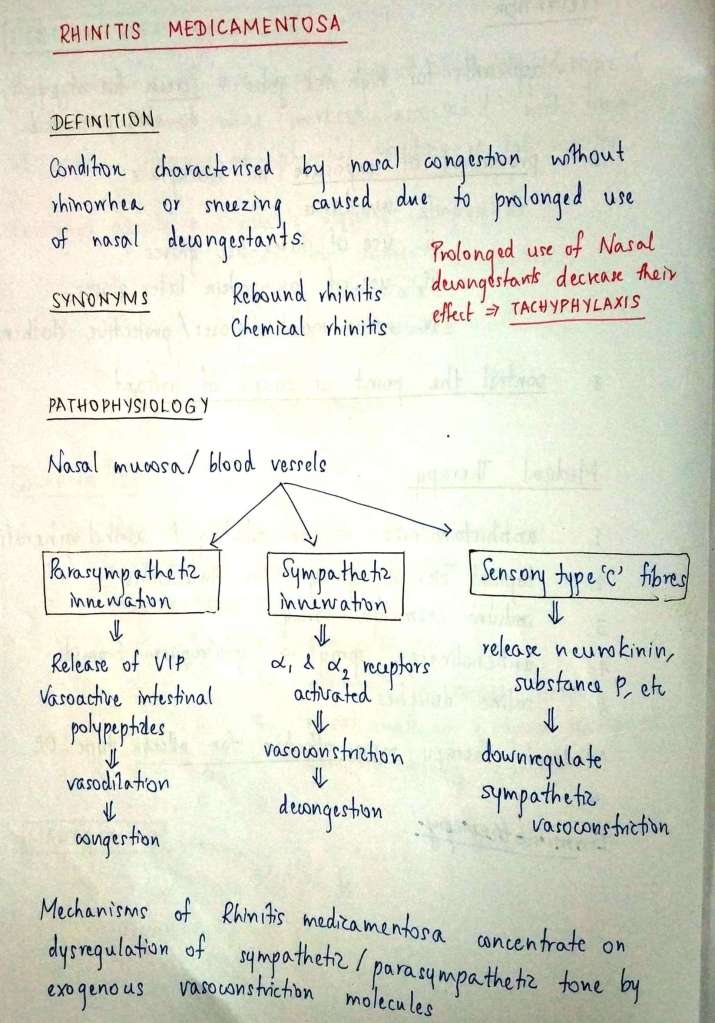 RHINITIS MEDICAMENTOSA
DEFINITION
Condition characterised by nasal congestion without
rhinorrhea or sneezing caused due to prolonged use
of nasal decongestants.
Prolonged use of Nasal
decongestants decrease their
effect ⇒ TACHYPHYLAXIS
SYNONYMS
Rebound rhinitis
Chemical rhinitis
PATHOPHYSIOLOGY
Nasal mucosa/ blood vessels
Parasympathetic
innervation
⇓
Release of VIP
Vasoactive intestinal
polypeptides
⇓
vasodilation
⇓
congestion
Sympathetic
innervation
⇓
α₁ & α₂ receptors
activated
⇓
vasoconstriction
⇓
decongestion
Sensory type 'C' fibres
⇓
release neurokinin,
substance P, etc
⇓
downregulate
sympathetic
vasoconstriction
Mechanisms of Rhinitis medicamentosa concentrate on
dysregulation of sympathetic / parasympathetic tone by
exogenous vasoconstriction molecules